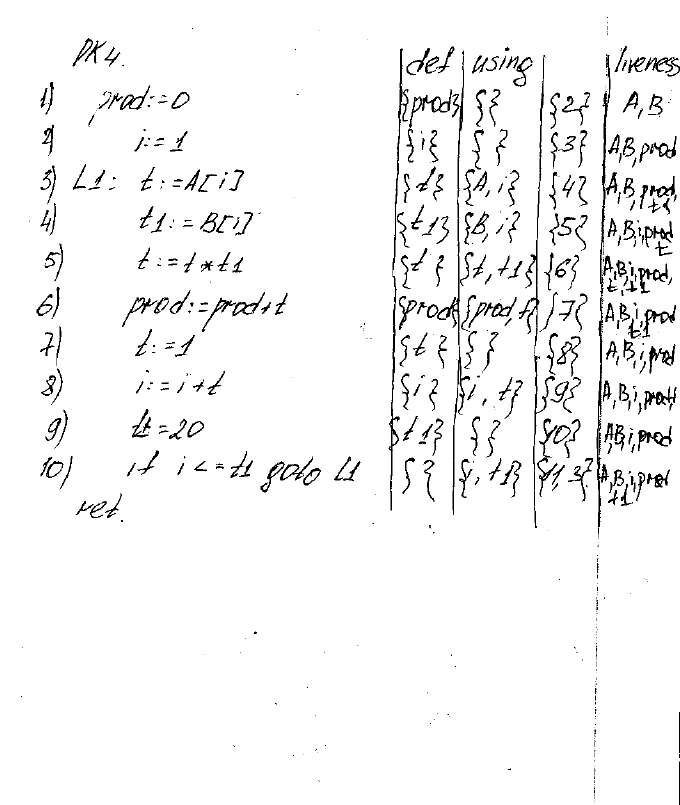 DK4. def using liveness
1) prod:=0 {prod} {} {2} A,B
2) i:=1 {i} {} {3} A,B,prod
3) L1: t:=A[i] {t} {A,i} {4} A,B,prod,
4) t1:=B[i] {t1} {B,i} {5} A,B,i,prod t
5) t:=t*t1 {t} {t,t1} {6} A,B,i,prod, t,t1
6) prod:=prod+t {prod} {prod,t} {7} A,B,i,prod
7) t:=1 {t} {} {8} A,B,i,prod
8) i:=i+t {i} {i,t} {9} A,B,i,prod,t
9) {t1} {} {10} A,B,i,prod
10) if i<=t1 goto L1 {} {i,t1} {11,3} A,B,i,prod t1
ret.